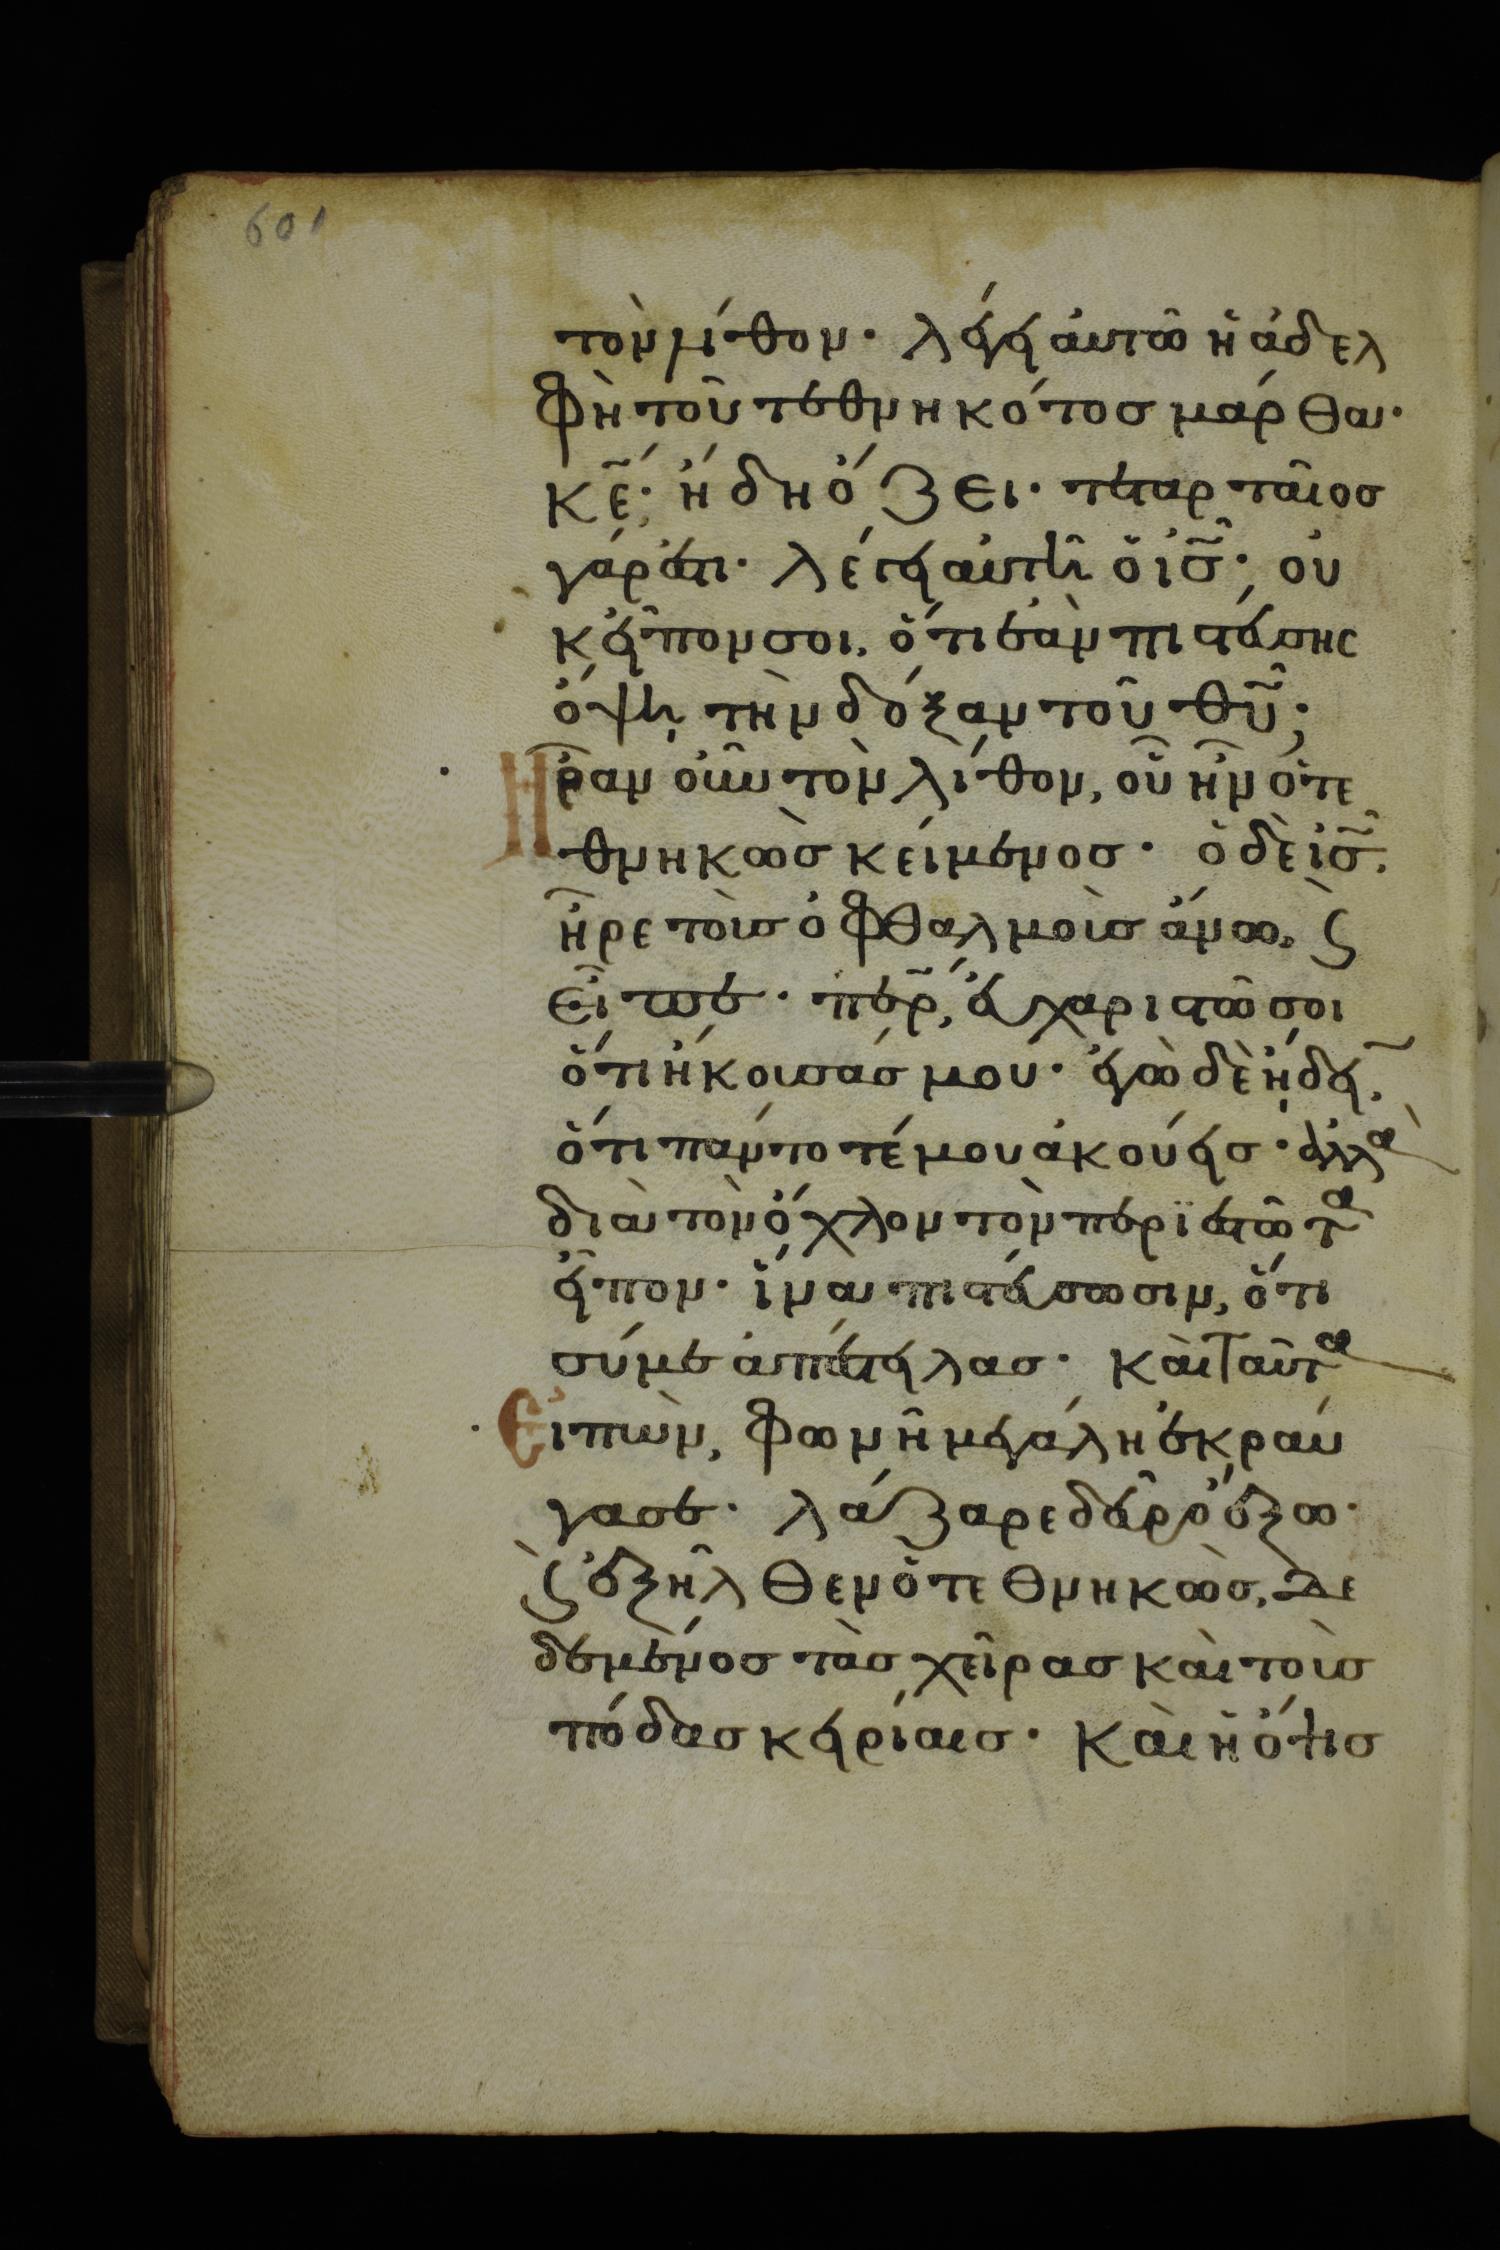 601
τὸν λίθον· λέγει αὐτῶ ἡ ἀδελ
φὴ τοῦ τεθνηκότοσ μάρθα·
κ̅ε̅· ἤδη ὄζει· τεταρταῖοσ
γάρ ἐστι· λέγει αὐτῆ ὁ ι̅σ̅· οὐ
κ εἶπον σοι, ὅτι ἐὰν πιστεύσης
ὄψει τὴν δόξαν τοῦ θ̅υ̅;
Ἦραν οὖν τὸν λίθον, οὗ ἦν ὁ τε
θνηκὼσ κείμενοσ· ὁ δὲ ι̅σ̅.
ἦρε τοὺσ ὀφθαλμοὺσ ἄνω, ϛ̀
εἶπε· π̅ε̅ρ̅, εὐχαριστῶ σοι
ὅτι ἤκουσάσ μου· ἐγὼ δὲ ἤδει,
ὅτι πάντοτέ μου ἀκούεισ· ἀλλὰ
διὰ τὸν ὄχλον τὸν περϊεστῶτα
εἶπον· ἵνα πιστεύσωσιν, ὅτι
σύ με ἀπέστειλασ· καὶ ταῦτα
Εἰπὼν, φωνῆ μεγάλη ἐκραύ
γασε· λάζαρε δεῦρο ἔξω·
ϛ̀ ἐξῆλθεν ὁ τεθνηκὼσ, δε
δεμένοσ τὰσ χεῖρασ καὶ τοὺσ
πόδασ κειρίαισ· καὶ ἡ ὄψισ